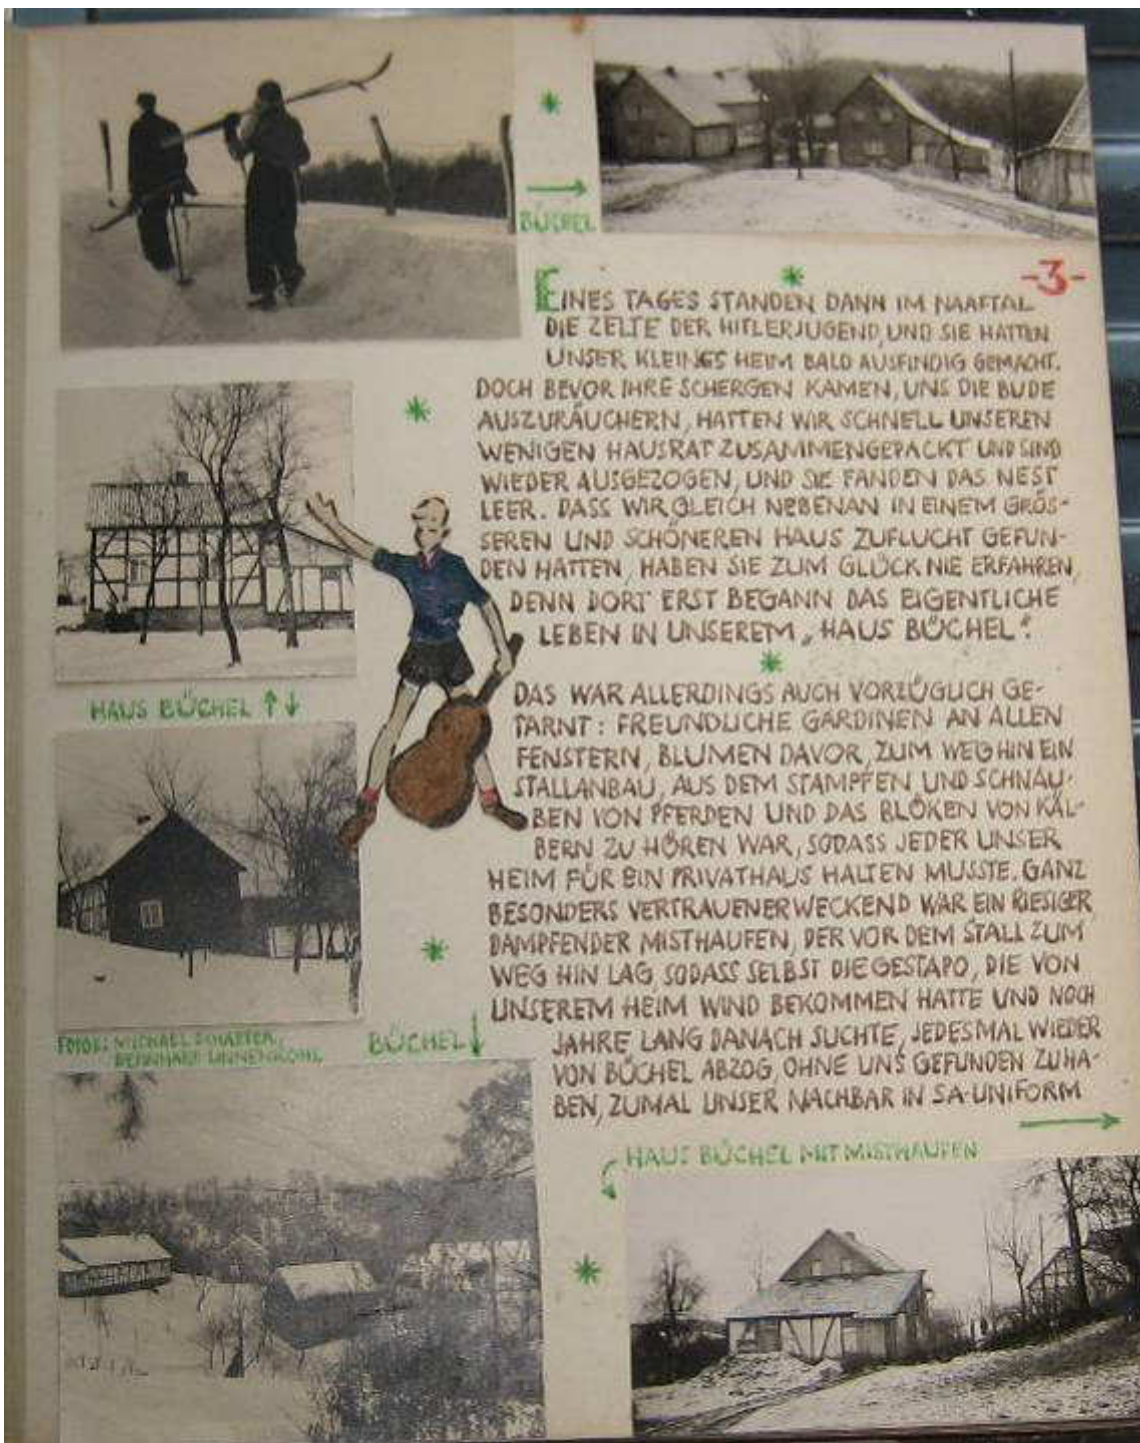 BÜCHEL
-3-
EINES TAGES STANDEN DANN IM NAAFTAL
DIE ZELTE DER HITLERJUGEND, UND SIE HATTEN
UNSER KLEINES HEIM BALD AUSFINDIG GEMACHT.
DOCH BEVOR IHRE SCHERGEN KAMEN, UNS DIE BUDE
AUSZURÄUCHERN, HATTEN WIR SCHNELL UNSEREN
WENIGEN HAUSRAT ZUSAMMENGEPACKT UND SIND
WIEDER AUSGEZOGEN, UND SIE FANDEN DAS NEST
LEER. DASS WIR GLEICH NEBENAN IN EINEM GRÖS-
SEREN UND SCHÖNEREN HAUS ZUFLUCHT GEFUN-
DEN HATTEN, HABEN SIE ZUM GLÜCK NIE ERFAHREN,
DENN DORT ERST BEGANN DAS EIGENTLICHE
LEBEN IN UNSEREM „HAUS BÜCHEL".
HAUS BÜCHEL ↑↓
DAS WAR ALLERDINGS AUCH VORZÜGLICH GE-
TARNT: FREUNDLICHE GARDINEN AN ALLEN
FENSTERN, BLUMEN DAVOR, ZUM WEG HIN EIN
STALLANBAU, AUS DEM STAMPFEN UND SCHNAU-
BEN VON PFERDEN UND DAS BLÖKEN VON KÄL-
BERN ZU HÖREN WAR, SODASS JEDER UNSER
HEIM FÜR EIN PRIVATHAUS HALTEN MUSSTE. GANZ
BESONDERS VERTRAUENERWECKEND WAR EIN RIESIGER,
DAMPFENDER MISTHAUFEN, DER VOR DEM STALL ZUM
WEG HIN LAG, SODASS SELBST DIE GESTAPO, DIE VON
UNSEREM HEIM WIND BEKOMMEN HATTE UND NOCH
JAHRE LANG DANACH SUCHTE, JEDESMAL WIEDER
VON BÜCHEL ABZOG, OHNE UNS GEFUNDEN ZU HA-
BEN, ZUMAL UNSER NACHBAR IN SA-UNIFORM
FOTOS: MICHAEL SCHAEFER,
BERNHARD LINNENKOHL
BÜCHEL↓
HAUS BÜCHEL MIT MISTHAUFEN